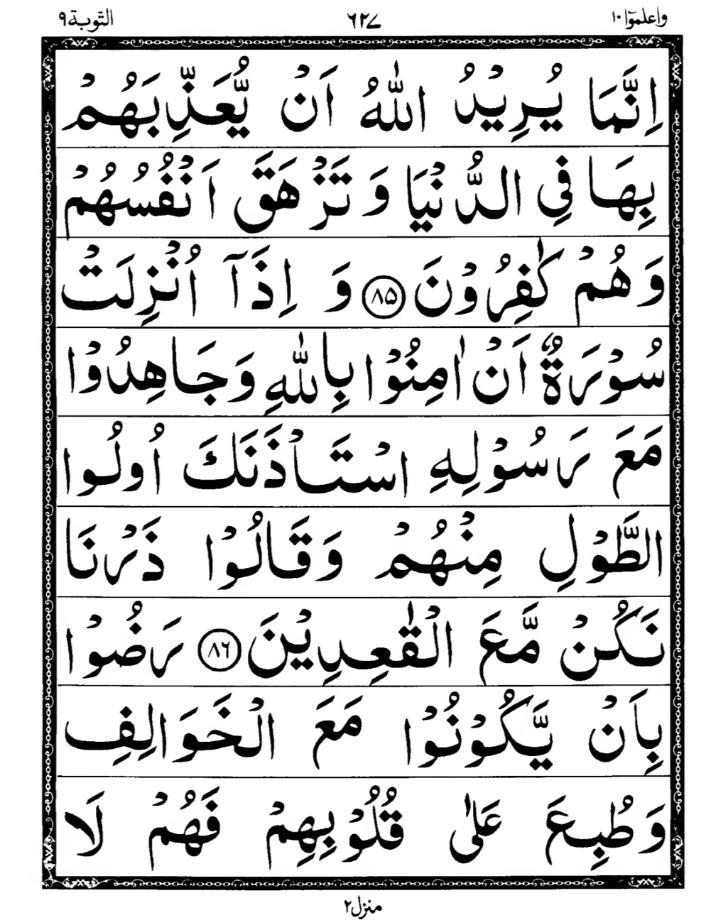 واعلموٓا ١٠ ٦٢٧ التّوبة ٩
اِنَّمَا يُرِيْدُ اللّٰهُ اَنْ يُّعَذِّبَهُمْ
بِهَا فِى الدُّنْيَا وَ تَزْهَقَ اَنْفُسُهُمْ
وَ هُمْ كٰفِرُوْنَ ۝٨٥ وَ اِذَآ اُنْزِلَتْ
سُوْرَةٌ اَنْ اٰمِنُوْا بِاللّٰهِ وَجَاهِدُوْا
مَعَ رَسُوْلِهِ اسْتَاْذَنَكَ اُولُوا
الطَّوْلِ مِنْهُمْ وَقَالُوْا ذَرْنَا
نَكُنْ مَّعَ الْقٰعِدِيْنَ ۝٨٦ رَضُوْا
بِاَنْ يَّكُوْنُوْا مَعَ الْخَوَالِفِ
وَ طُبِعَ عَلٰى قُلُوْبِهِمْ فَهُمْ لَا
منزل٢